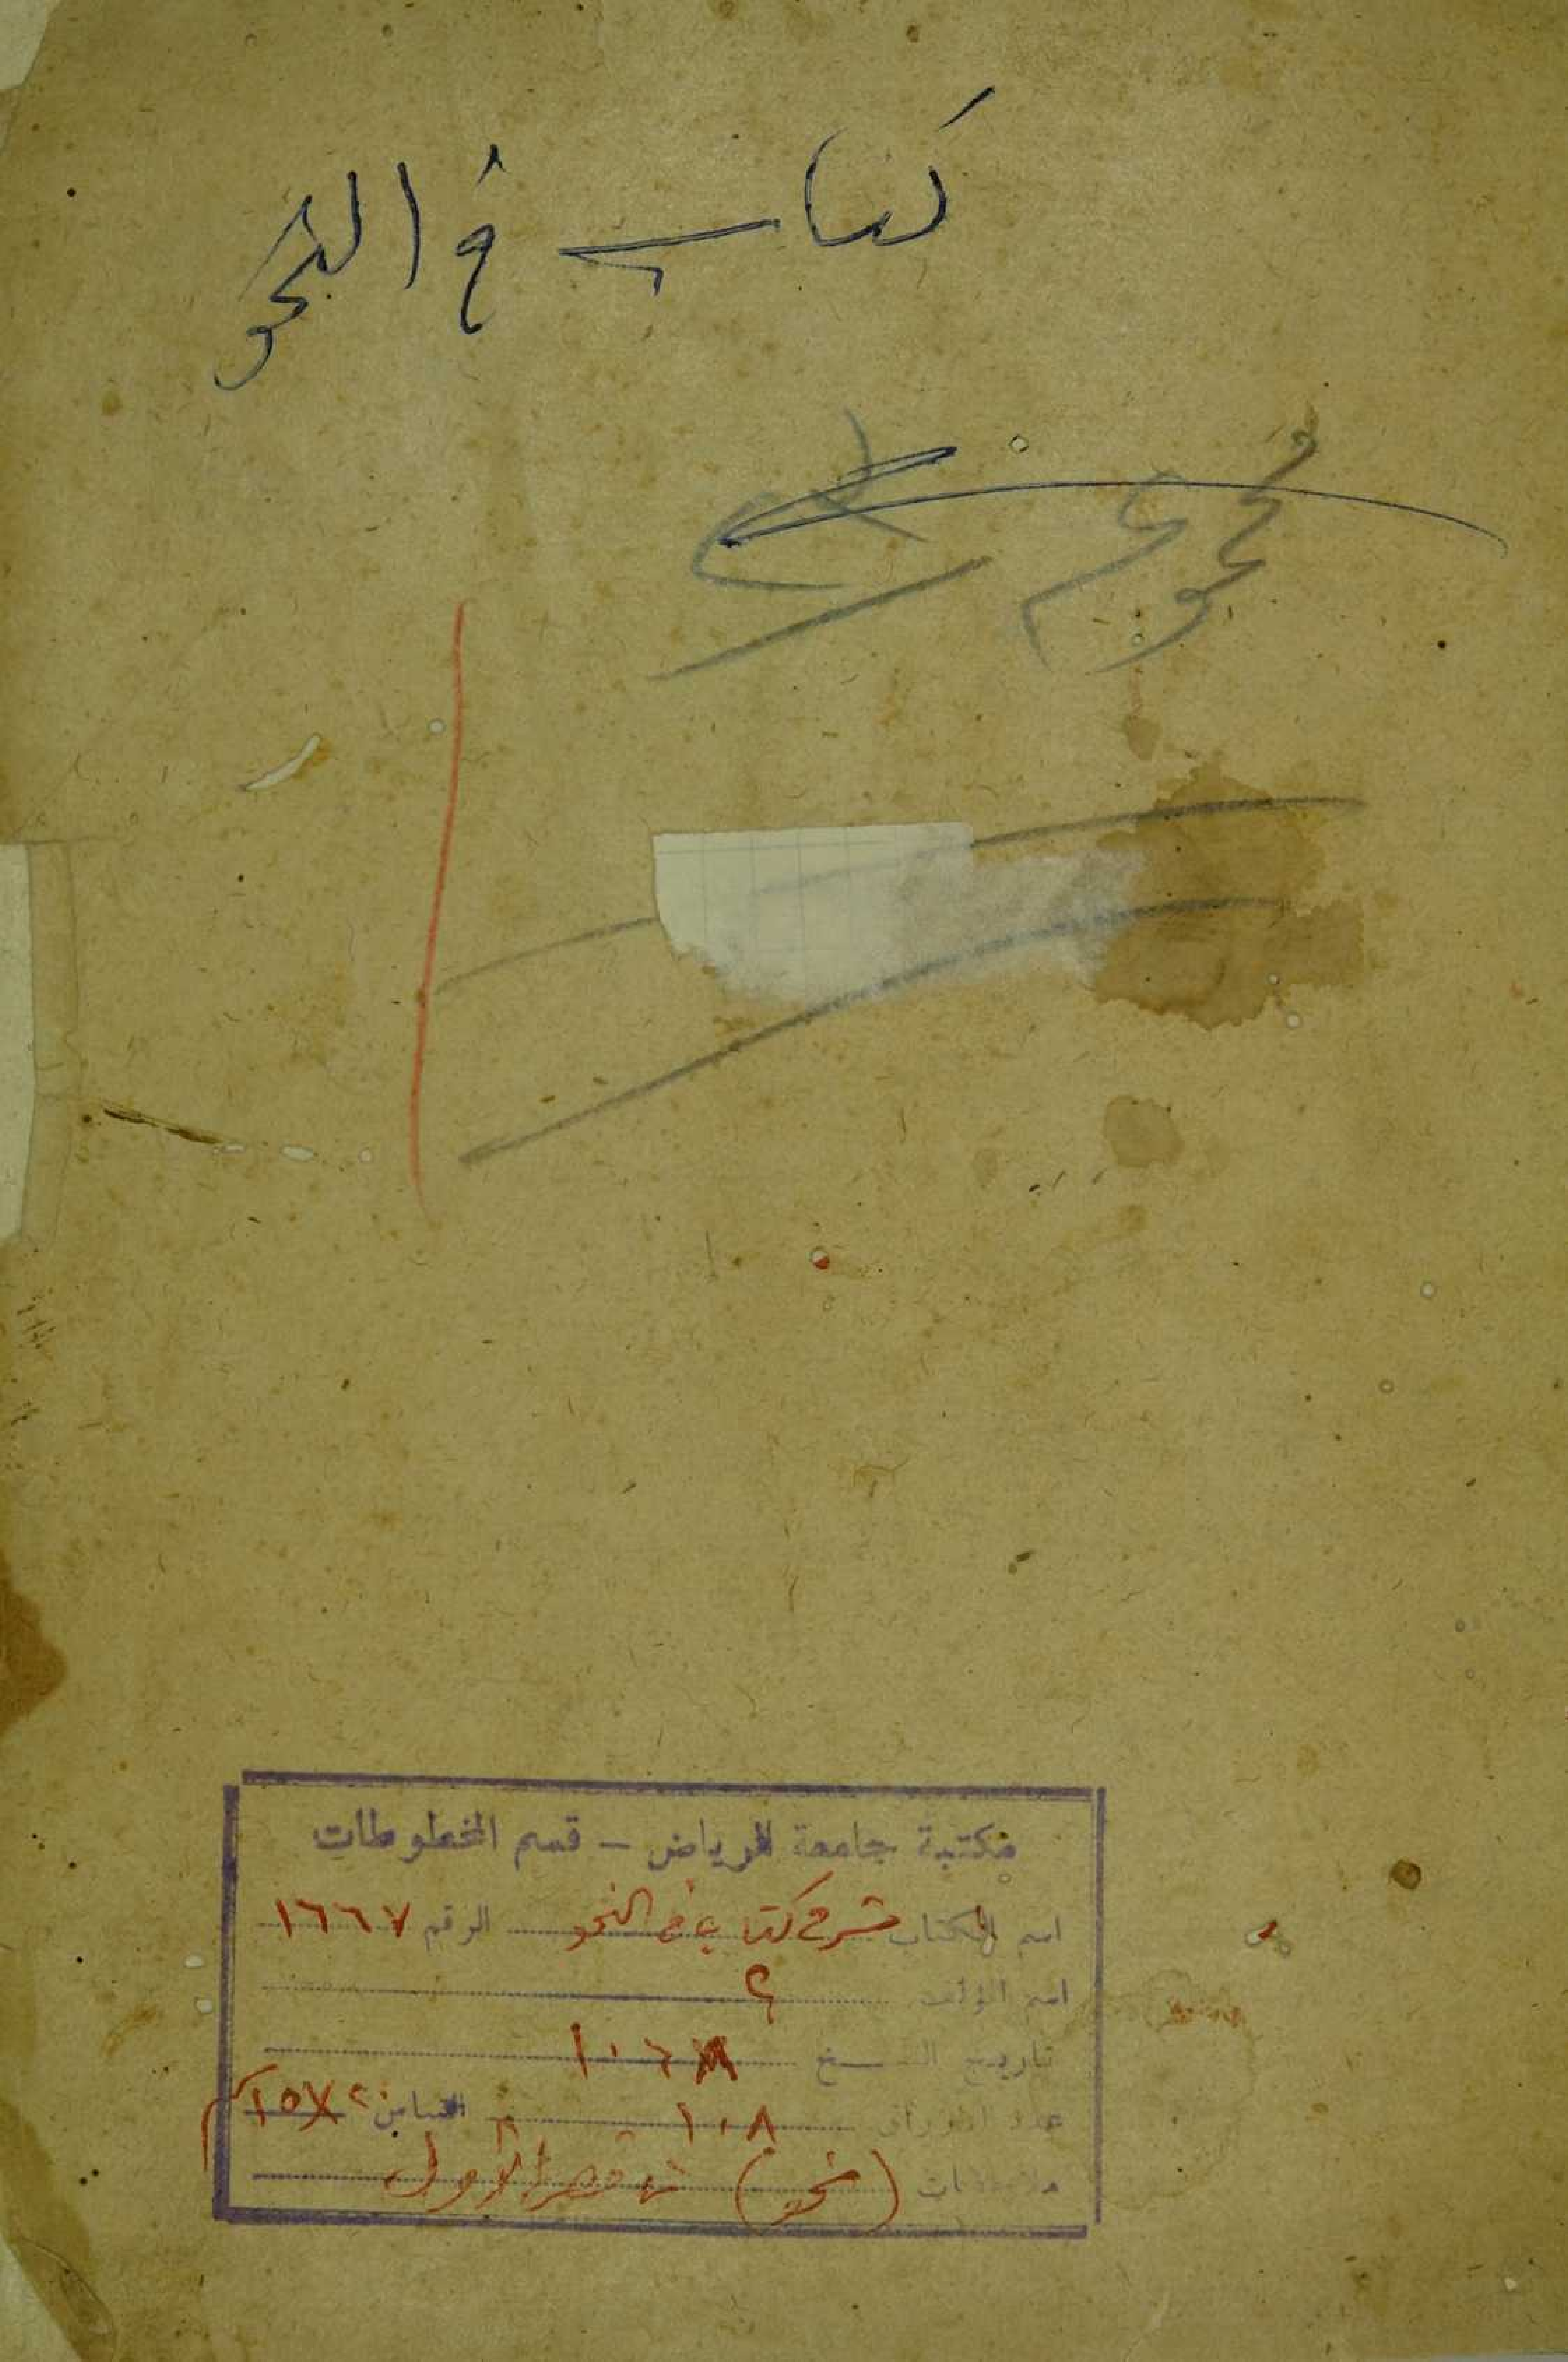 كتاب في النحو
نحو
مكتبة جامعة الرياض - قسم المخطوطات
اسم الكتاب شرح كتاب في النحو الرقم ١٦٦٧
اسم المؤلف ؟
تاريخ النسخ
عدد الاوراق ١٠٨ القياس ١٥X٢٠ سم
ملاحظات (نحو) ناقص الأول